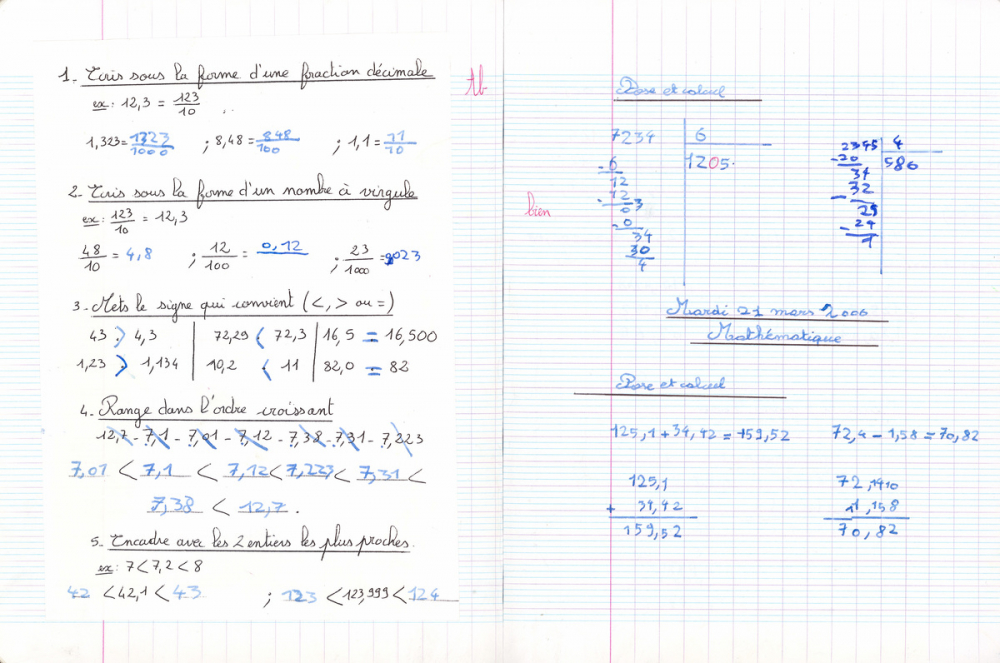 1- Ecris sous la forme d'une fraction décimale
ex: 12,3 = 123/10
1,323 = 1323/1000 ; 8,48 = 848/100 ; 1,1 = 11/10
tb
2- Ecris sous la forme d'un nombre à virgule
ex: 123/10 = 12,3
48/10 = 4,8 ; 12/100 = 0,12 ; 23/1000 = 0,023
3- Mets le signe qui convient (<, > ou =)
43 > 4,3 | 72,29 < 72,3 | 16,5 = 16,500
1,23 > 1,134 | 10,2 < 11 | 82,0 = 82
4- Range dans l'ordre croissant
12,7 - 7,1 - 7,01 - 7,12 - 7,38 - 7,31 - 7,223
7,01 < 7,1 < 7,12 < 7,223 < 7,31 <
7,38 < 12,7.
5- Encadre avec les 2 entiers les plus proches.
ex: 7 < 7,2 < 8
42 < 42,1 < 43 ; 123 < 123,999 < 124
Pose et calcul
7234 | 6
- 6 | 1205
12
- 12
03
- 0
34
30
4
bien
2345 | 4
- 20 | 586
34
- 32
25
- 24
1
Mardi 21 mars 2006
Mathématique
Pose et calcul
125,1 + 34,42 = 159,52
72,4 - 1,58 = 70,82
125,1
+ 34,42
159,52
72,1410
11,158
70,82